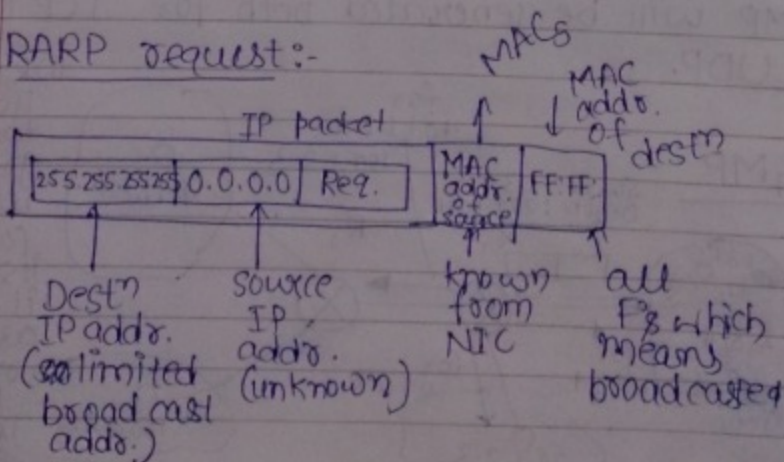 RARP request:-
MACs
MAC
addr.
of
destn
IP packet
255.255.255.255 0.0.0.0 Req. MAC addr. of source FF:FF
Destn
IP addr.
(limited
broadcast
addr.)
source
IP
addr.
(unknown)
known
from
NIC
all
F's which
means
broadcasted